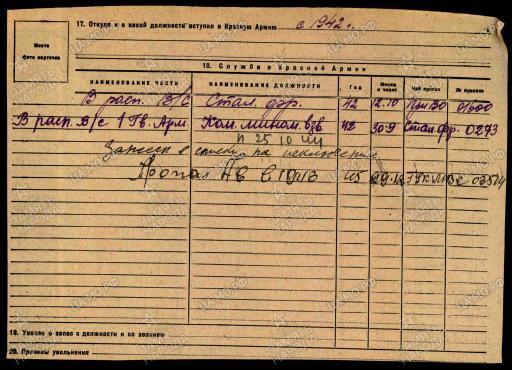 17. Откуда и с какой должности вступил в Красную Армию с 1942 г.
Место
фото карточки
18. Служба в Красной Армии
НАИМЕНОВАНИЕ ЧАСТИ НАИМЕНОВАНИЕ ДОЛЖНОСТИ Год Месяц и число Чей приказ № приказа
В расп. В/С Стал. фр. 42 12.10 ПриВО 01600
В расп. в/с 1 Гв. Арм. Ком. мином. взв 42 30.9 Стал. фр. 0273
п 25 10 44
Занесен в списки на исключение
Пропал 45 29.12
19. Уволен в запас с должности и со званием
20. Причины увольнения